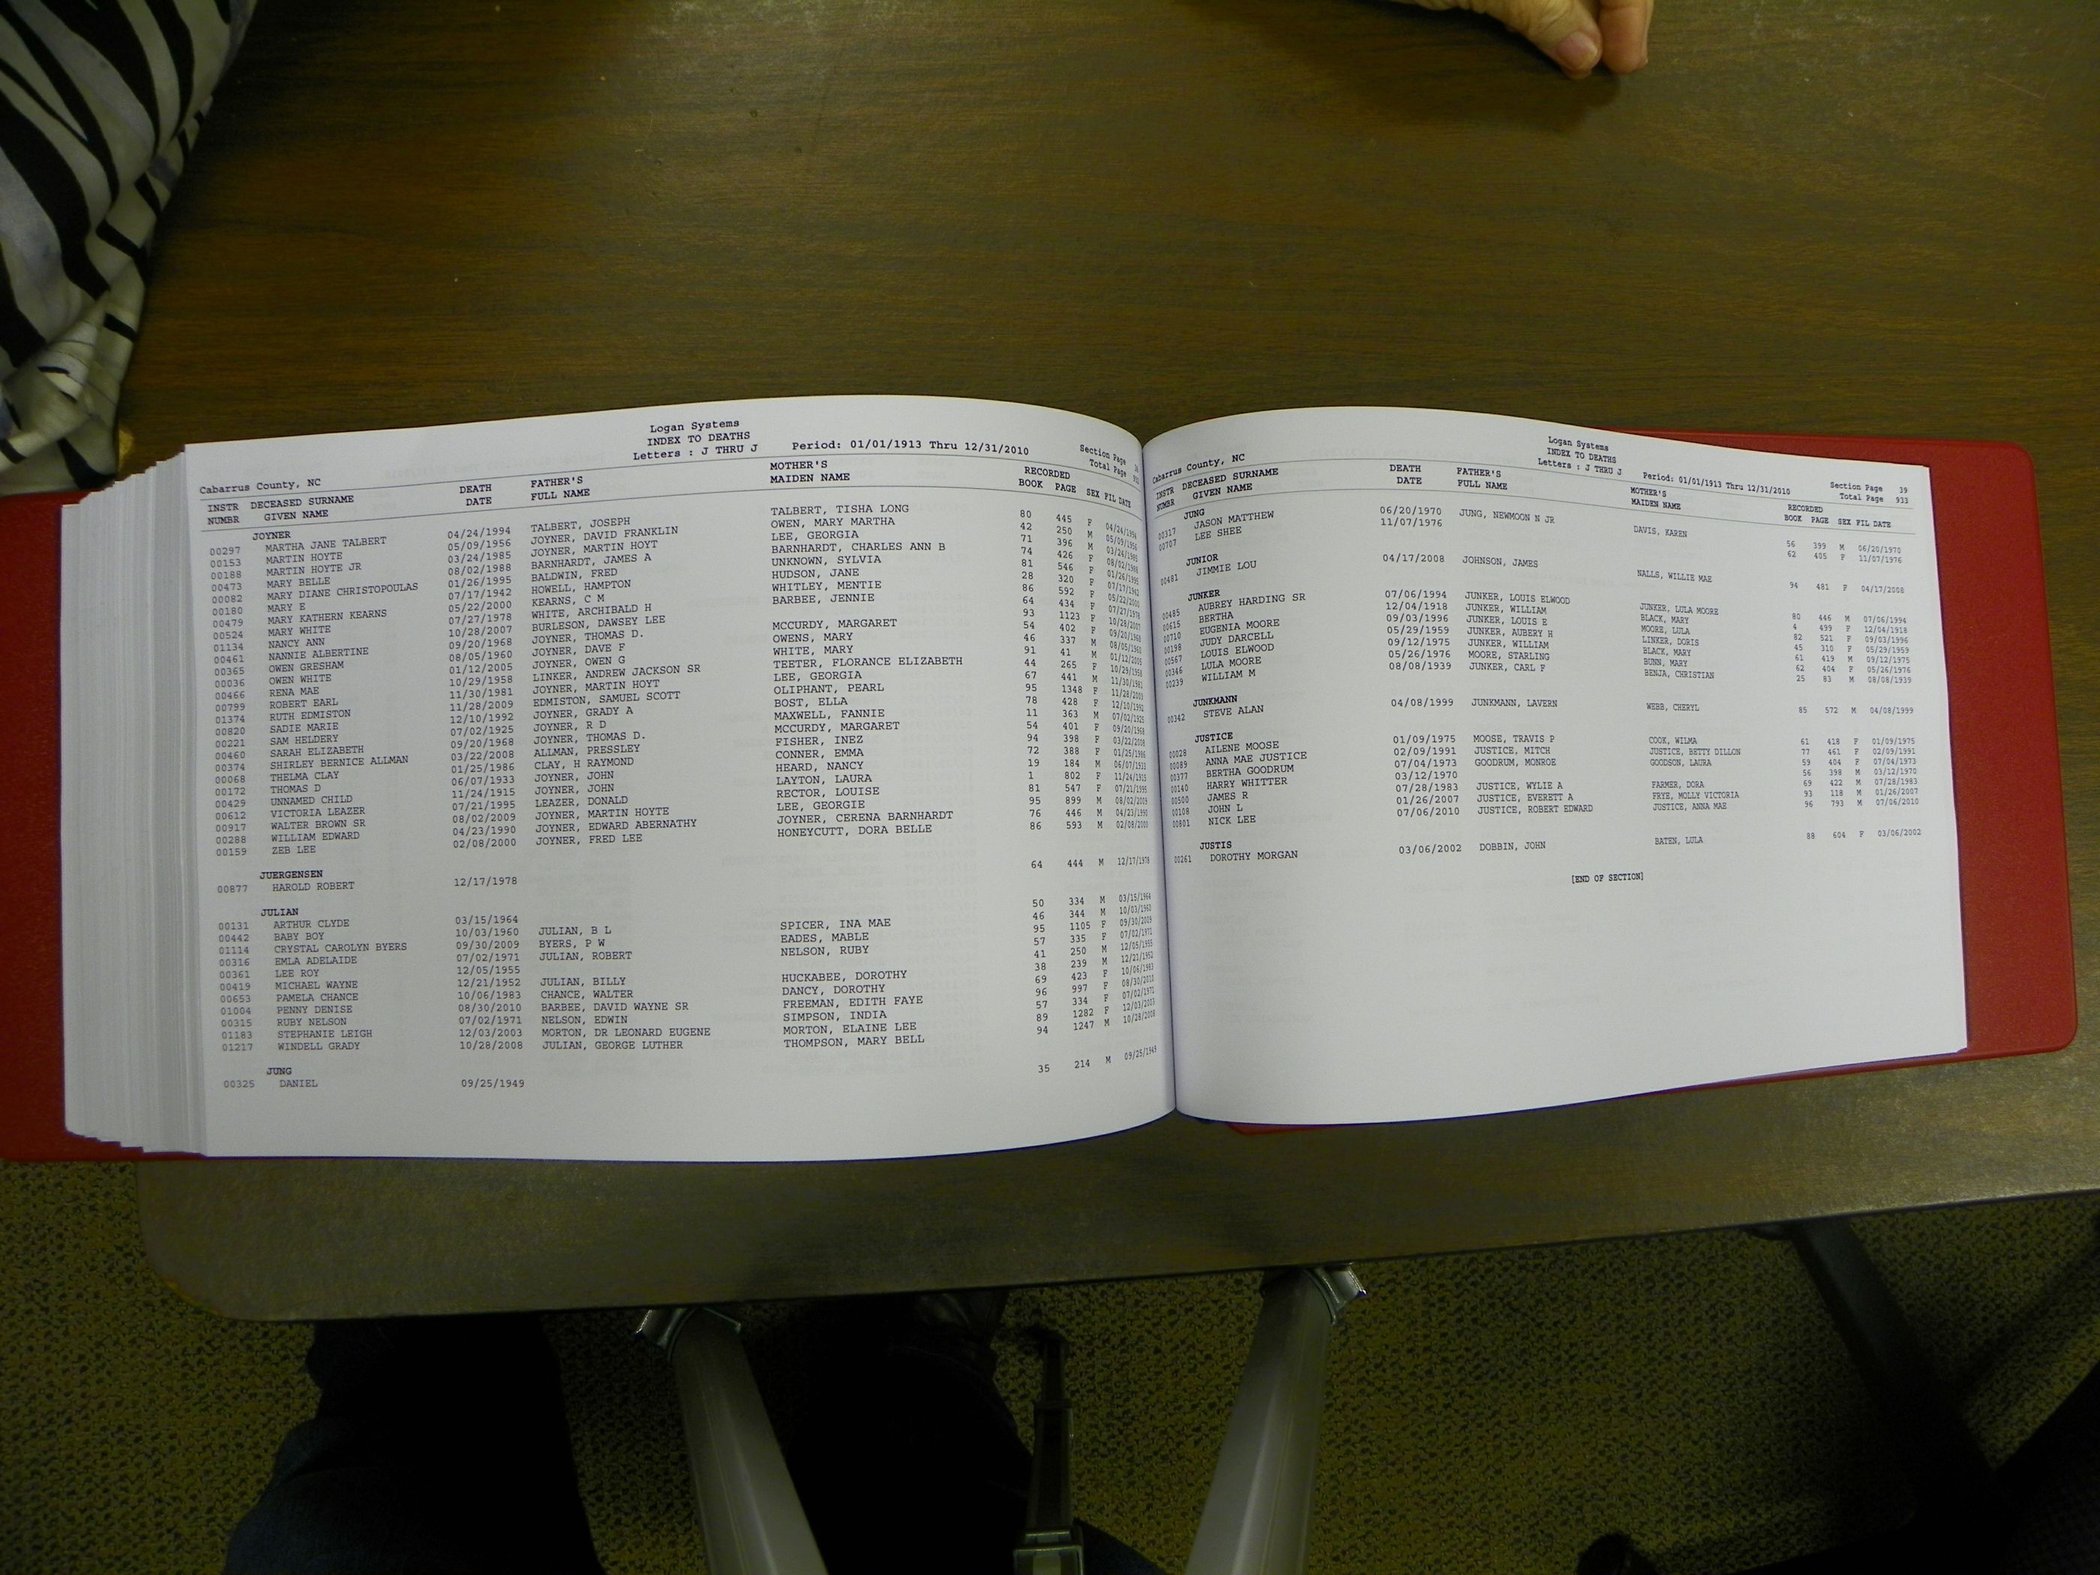 Logan Systems
INDEX TO DEATHS
Cabarrus County, NC Letters : J THRU J Period: 01/01/1913 Thru 12/31/2010 Section Page
Total Page
INSTR DECEASED SURNAME DEATH FATHER'S MOTHER'S RECORDED
NUMBR GIVEN NAME DATE FULL NAME MAIDEN NAME BOOK PAGE SEX FIL DATE
JOYNER
00297 MARTHA JANE TALBERT 04/24/1994 TALBERT, JOSEPH TALBERT, TISHA LONG 80 445 F 04/24/1994
00153 MARTIN HOYTE 05/09/1956 JOYNER, DAVID FRANKLIN OWEN, MARY MARTHA 42 250 M 05/09/1956
00188 MARTIN HOYTE JR 03/24/1985 JOYNER, MARTIN HOYT LEE, GEORGIA 71 396 M 03/24/1985
00473 MARY BELLE 08/02/1988 BARNHARDT, JAMES A BARNHARDT, CHARLES ANN B 74 426 F 08/02/1988
00082 MARY DIANE CHRISTOPOULAS 01/26/1995 BALDWIN, FRED UNKNOWN, SYLVIA 81 546 F 01/26/1995
00180 MARY E 07/17/1942 HOWELL, HAMPTON HUDSON, JANE 28 320 F 07/17/1942
00479 MARY KATHERN KEARNS 05/22/2000 KEARNS, C M WHITLEY, MENTIE 86 592 F 05/22/2000
00524 MARY WHITE 07/27/1978 WHITE, ARCHIBALD H BARBEE, JENNIE 64 434 F 07/27/1978
01134 NANCY ANN 10/28/2007 BURLESON, DAWSEY LEE 93 1123 F 10/28/2007
00461 NANNIE ALBERTINE 09/20/1968 JOYNER, THOMAS D. MCCURDY, MARGARET 54 402 F 09/20/1968
00365 OWEN GRESHAM 08/05/1960 JOYNER, DAVE F OWENS, MARY 46 337 M 08/05/1960
00036 OWEN WHITE 01/12/2005 JOYNER, OWEN G WHITE, MARY 91 41 M 01/12/2005
00466 RENA MAE 10/29/1958 LINKER, ANDREW JACKSON SR TEETER, FLORANCE ELIZABETH 44 265 F 10/29/1958
00799 ROBERT EARL 11/30/1981 JOYNER, MARTIN HOYT LEE, GEORGIA 67 441 M 11/30/1981
01374 RUTH EDMISTON 11/28/2009 EDMISTON, SAMUEL SCOTT OLIPHANT, PEARL 95 1348 F 11/28/2009
00820 SADIE MARIE 12/10/1992 JOYNER, GRADY A BOST, ELLA 78 428 F 12/10/1992
00221 SAM HELDERY 07/02/1925 JOYNER, R D MAXWELL, FANNIE 11 363 M 07/02/1925
00460 SARAH ELIZABETH 09/20/1968 JOYNER, THOMAS D. MCCURDY, MARGARET 54 401 F 09/20/1968
00374 SHIRLEY BERNICE ALLMAN 03/22/2008 ALLMAN, PRESSLEY FISHER, INEZ 94 398 F 03/22/2008
00068 THELMA CLAY 01/25/1986 CLAY, H RAYMOND CONNER, EMMA 72 388 F 01/25/1986
00172 THOMAS D 06/07/1933 JOYNER, JOHN HEARD, NANCY 19 184 M 06/07/1933
00429 UNNAMED CHILD 11/24/1915 JOYNER, JOHN LAYTON, LAURA 1 802 F 11/24/1915
00612 VICTORIA LEAZER 07/21/1995 LEAZER, DONALD RECTOR, LOUISE 81 547 F 07/21/1995
00917 WALTER BROWN SR 08/02/2009 JOYNER, MARTIN HOYTE LEE, GEORGIE 95 899 M 08/02/2009
00288 WILLIAM EDWARD 04/23/1990 JOYNER, EDWARD ABERNATHY JOYNER, CERENA BARNHARDT 76 446 M 04/23/1990
00159 ZEB LEE 02/08/2000 JOYNER, FRED LEE HONEYCUTT, DORA BELLE 86 593 M 02/08/2000
JUERGENSEN
00877 HAROLD ROBERT 12/17/1978 64 444 M 12/17/1978
JULIAN
00131 ARTHUR CLYDE 03/15/1964 50 334 M 03/15/1964
00442 BABY BOY 10/03/1960 JULIAN, B L SPICER, INA MAE 46 344 M 10/03/1960
01114 CRYSTAL CAROLYN BYERS 09/30/2009 BYERS, P W EADES, MABLE 95 1105 F 09/30/2009
00316 EMLA ADELAIDE 07/02/1971 JULIAN, ROBERT NELSON, RUBY 57 335 F 07/02/1971
00361 LEE ROY 12/05/1955 41 250 M 12/05/1955
00419 MICHAEL WAYNE 12/21/1952 JULIAN, BILLY HUCKABEE, DOROTHY 38 239 M 12/21/1952
00653 PAMELA CHANCE 10/06/1983 CHANCE, WALTER DANCY, DOROTHY 69 423 F 10/06/1983
01004 PENNY DENISE 08/30/2010 BARBEE, DAVID WAYNE SR FREEMAN, EDITH FAYE 96 997 F 08/30/2010
00315 RUBY NELSON 07/02/1971 NELSON, EDWIN SIMPSON, INDIA 57 334 F 07/02/1971
01183 STEPHANIE LEIGH 12/03/2003 MORTON, DR LEONARD EUGENE MORTON, ELAINE LEE 89 1282 F 12/03/2003
01217 WINDELL GRADY 10/28/2008 JULIAN, GEORGE LUTHER THOMPSON, MARY BELL 94 1247 M 10/28/2008
JUNG
00325 DANIEL 09/25/1949 35 214 M 09/25/1949
Logan Systems
INDEX TO DEATHS
Cabarrus County, NC Letters : J THRU J Period: 01/01/1913 Thru 12/31/2010 Section Page 39
Total Page 933
INSTR DECEASED SURNAME DEATH FATHER'S MOTHER'S RECORDED
NUMBR GIVEN NAME DATE FULL NAME MAIDEN NAME BOOK PAGE SEX FIL DATE
JUNG
00317 JASON MATTHEW 06/20/1970 JUNG, NEWMOON N JR DAVIS, KAREN 56 399 M 06/20/1970
00707 LEE SHEE 11/07/1976 62 405 F 11/07/1976
JUNIOR
00481 JIMMIE LOU 04/17/2008 JOHNSON, JAMES NALLS, WILLIE MAE 94 481 F 04/17/2008
JUNKER
00485 AUBREY HARDING SR 07/06/1994 JUNKER, LOUIS ELWOOD JUNKER, LULA MOORE 80 446 M 07/06/1994
00615 BERTHA 12/04/1918 JUNKER, WILLIAM BLACK, MARY 4 499 F 12/04/1918
00710 EUGENIA MOORE 09/03/1996 JUNKER, LOUIS E MOORE, LULA 82 521 F 09/03/1996
00198 JUDY DARCELL 05/29/1959 JUNKER, AUBERY H LINKER, DORIS 45 310 F 05/29/1959
00567 LOUIS ELWOOD 09/12/1975 JUNKER, WILLIAM BLACK, MARY 61 419 M 09/12/1975
00346 LULA MOORE 05/26/1976 MOORE, STARLING BUNN, MARY 62 404 F 05/26/1976
00239 WILLIAM M 08/08/1939 JUNKER, CARL F BENJA, CHRISTIAN 25 83 M 08/08/1939
JUNKMANN
00342 STEVE ALAN 04/08/1999 JUNKMANN, LAVERN WEBB, CHERYL 85 572 M 04/08/1999
JUSTICE
00028 AILENE MOOSE 01/09/1975 MOOSE, TRAVIS P COOK, WILMA 61 418 F 01/09/1975
00089 ANNA MAE JUSTICE 02/09/1991 JUSTICE, MITCH JUSTICE, BETTY DILLON 77 461 F 02/09/1991
00377 BERTHA GOODRUM 07/04/1973 GOODRUM, MONROE GOODSON, LAURA 59 404 F 07/04/1973
00140 HARRY WHITTER 03/12/1970 56 398 M 03/12/1970
00500 JAMES R 07/28/1983 JUSTICE, WYLIE A FARMER, DORA 69 422 M 07/28/1983
00108 JOHN L 01/26/2007 JUSTICE, EVERETT A FRYE, MOLLY VICTORIA 93 118 M 01/26/2007
00801 NICK LEE 07/06/2010 JUSTICE, ROBERT EDWARD JUSTICE, ANNA MAE 96 793 M 07/06/2010
JUSTIS
00261 DOROTHY MORGAN 03/06/2002 DOBBIN, JOHN BATEN, LULA 88 604 F 03/06/2002
[END OF SECTION]